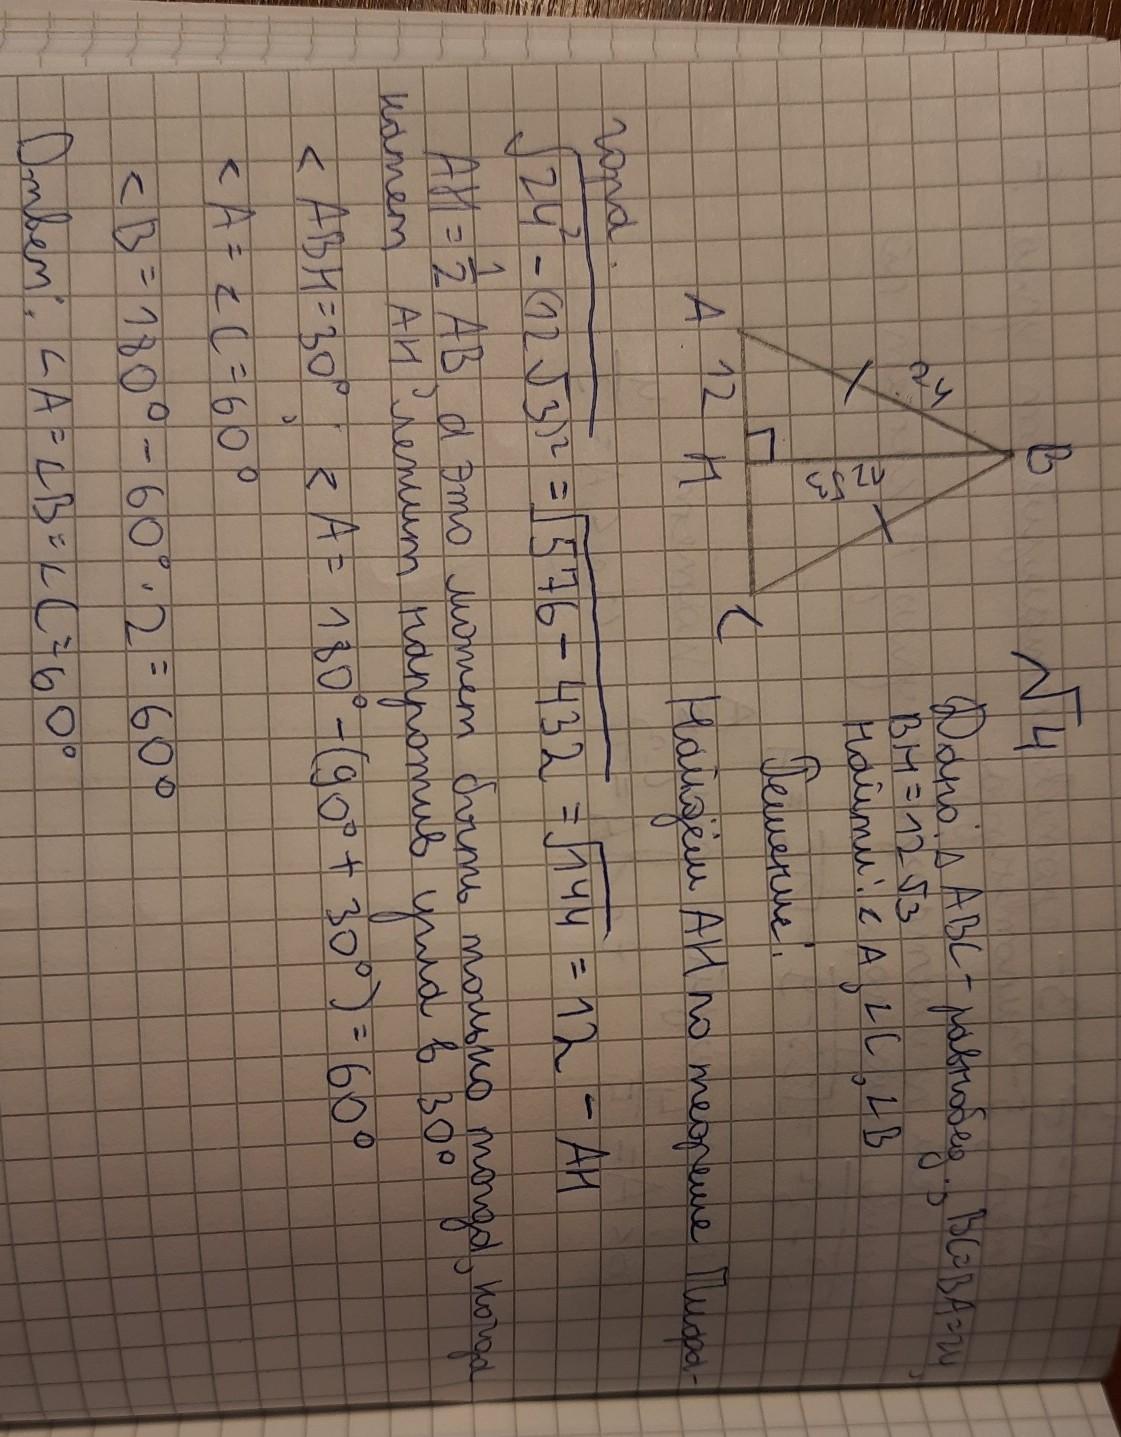 √4
Дано: Δ ABC - равнобед., BC=BA=24,
BH=12√3
Найти: ∠A, ∠C, ∠B
Решение:
B
24
12√3
A 12 H C
Найдём AH по теореме Пифа-
гора.
√24² - (12√3)² = √576 - 432 = √144 = 12 - AH
AH = 1/2 AB, а это может быть только тогда, когда
катет AH лежит напротив угла в 30°
< ABH = 30°. < A = 180° - (90° + 30°) = 60°
< A = ∠C = 60°
< B = 180° - 60° · 2 = 60°
Ответ: ∠A = ∠B = ∠C = 60°